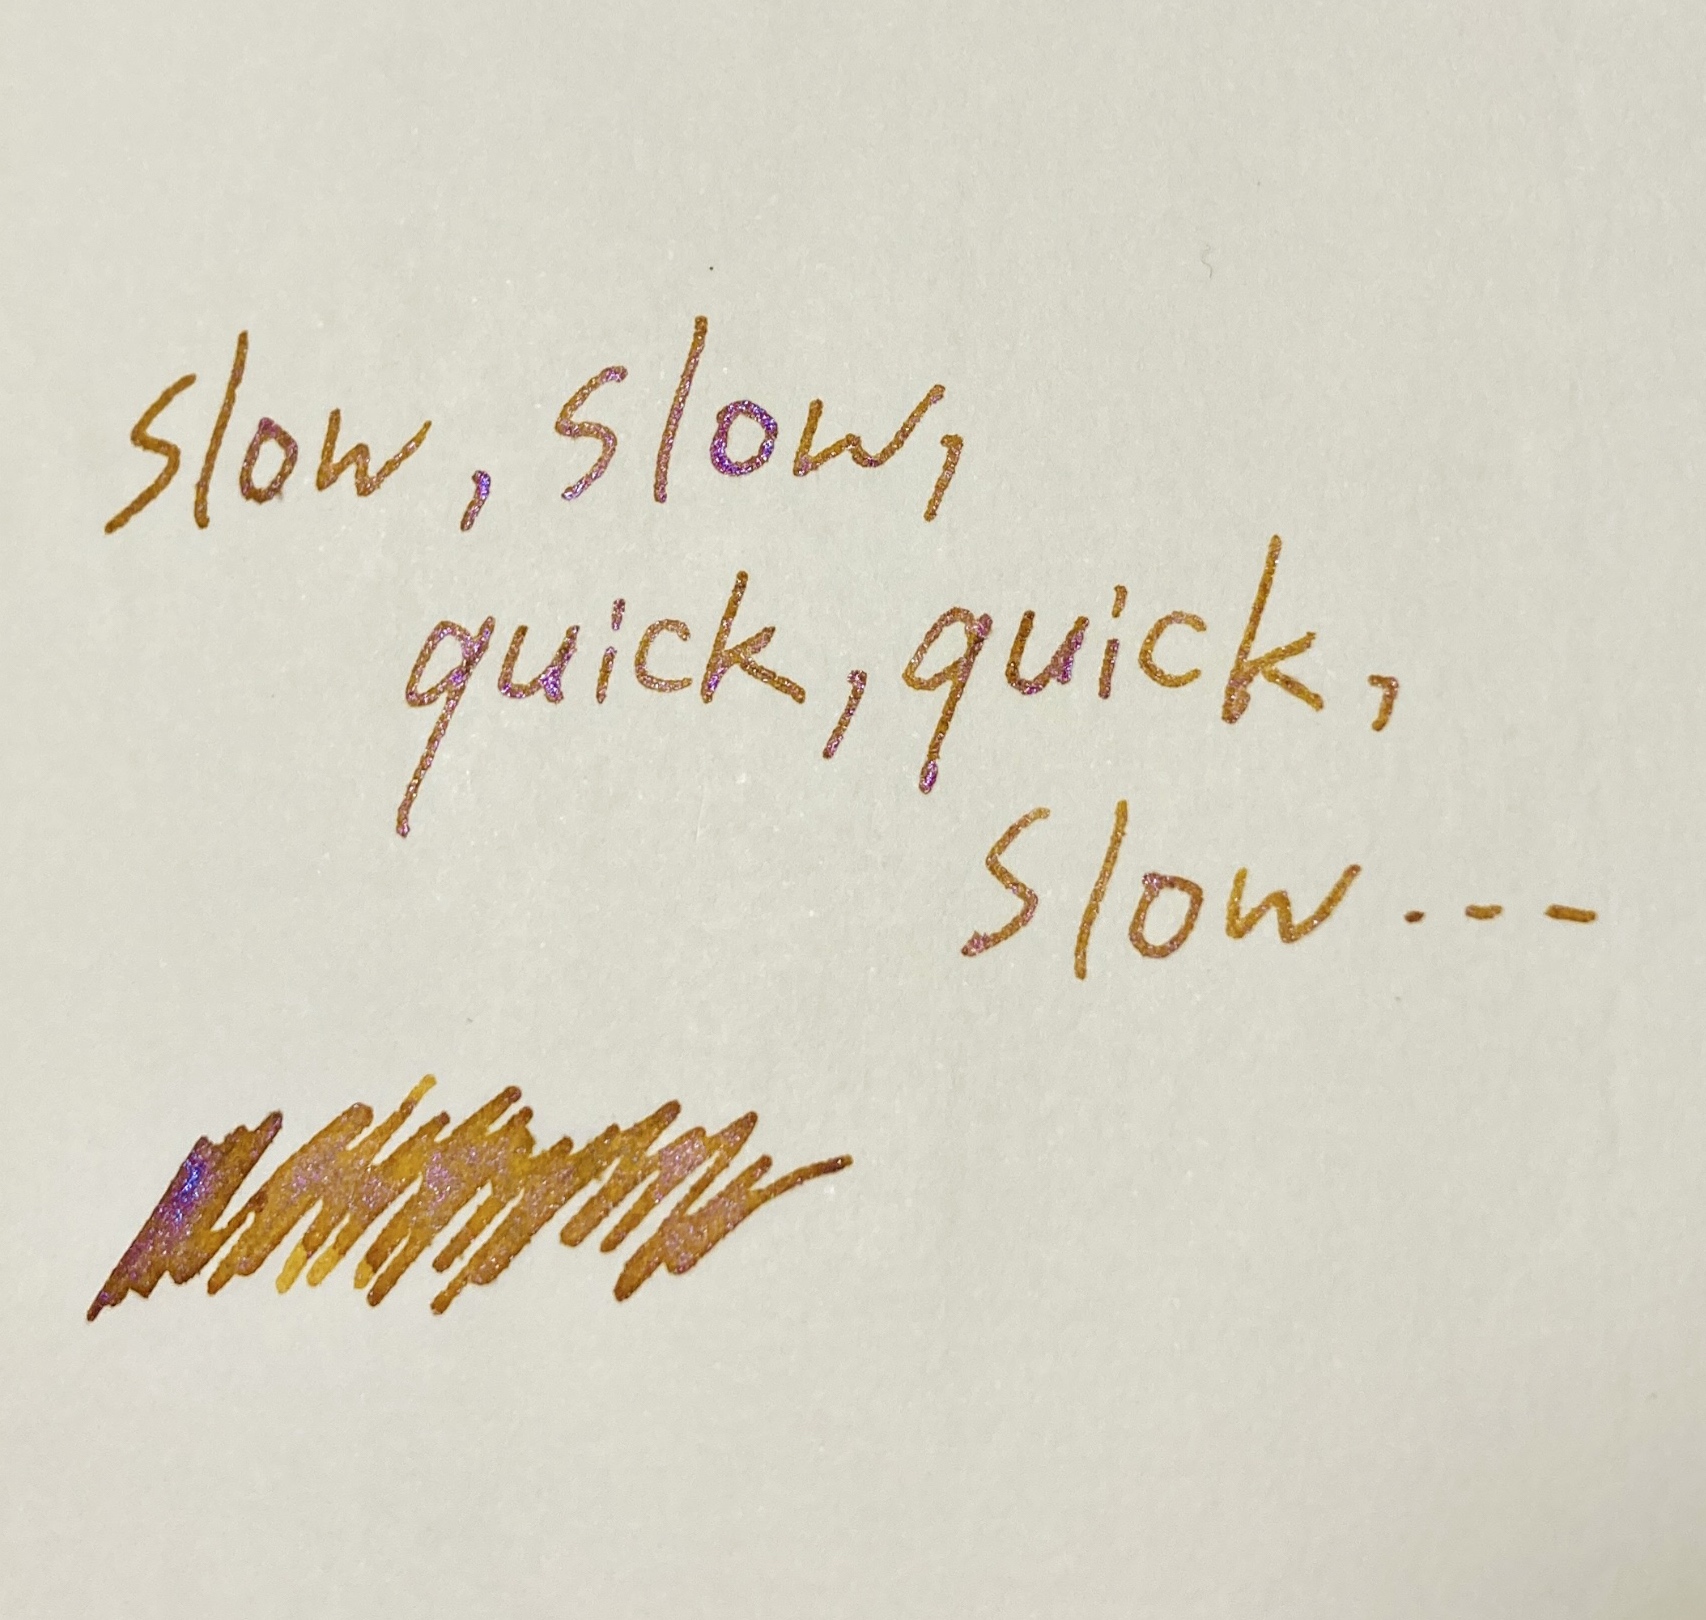 slow, slow,
quick, quick,
slow...